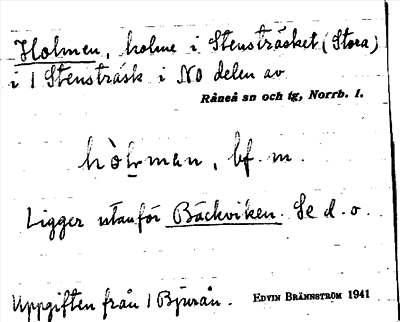 Holmen, holme i Stensträsket (Stora)
i 1 Stensträsk i NO delen av
Råneå sn och tg, Norrb. l.
hòlman, bf. m.
Ligger utanför Bäckviken. Se d. o.
Uppgiften från 1 Bjurån. EDVIN BRÄNNSTRÖM 1941